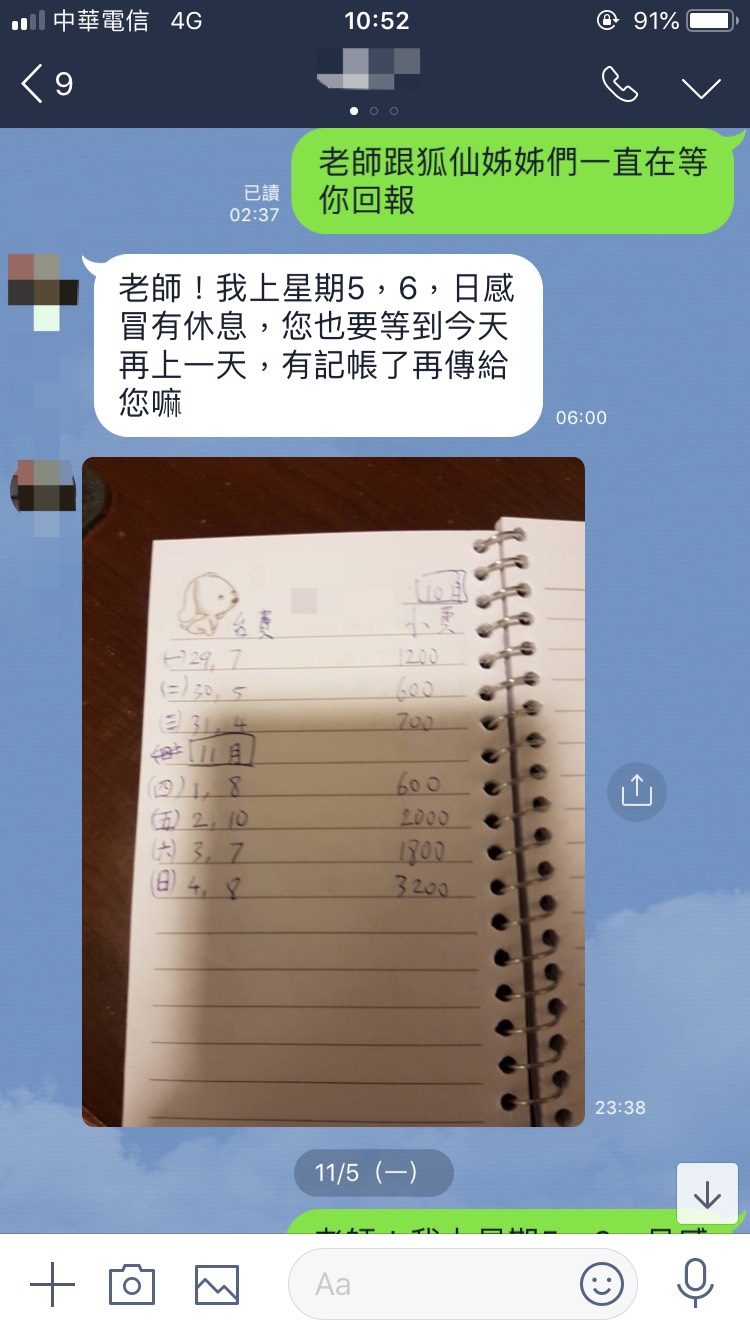 中華電信 4G 10:52 91%
9
老師跟狐仙姊姊們一直在等
你回報
已讀
02:37
老師！我上星期5，6，日感
冒有休息，您也要等到今天
再上一天，有記帳了再傳給
您嘛
06:00
10月
台費 小費
(一)29, 7 1200
(二)30, 5 600
(三)31, 4 700
11月
(四)1, 8 600
(五)2, 10 2000
(六)3, 7 1800
(日)4, 8 3200
23:38
11/5（一）
老師！我上星期5，6，日感
Aa